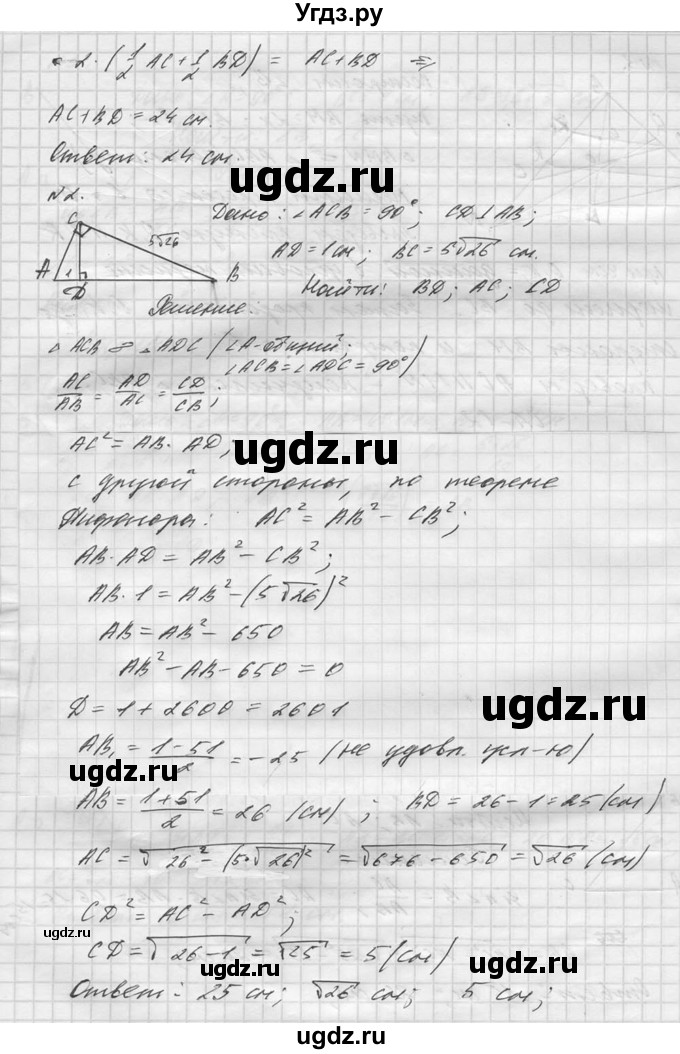 Угдз.ру
= 2·(1/2 AC + 1/2 BD) = AC + BD ⇒
AC + BD = 24 см.
Ответ: 24 см.
ugdz.ru
ugdz.ru
№2.
Дано: ∠ACB = 90°; CD ⊥ AB;
C
5√26
AD = 1 см; BC = 5√26 см.
A 1 D B
Найти: BD; AC; CD
Решение:
△ACB ∞ △ADC (∠A - общий;
∠ACB = ∠ADC = 90°)
AC/AB = AD/AC = CD/CB;
AC² = AB · AD,
ugdz.ru
с другой стороны, по теореме
Пифагора: AC² = AB² − CB²;
AB · AD = AB² − CB²;
AB · 1 = AB² − (5√26)²
AB = AB² − 650
AB² − AB − 650 = 0
Д = 1 + 2600 = 2601
ugdz.ru
AB₁ = (1 − 51)/2 = −25 (не удовл. усл-ю)
ugdz.ru
AB = (1 + 51)/2 = 26 (см); BD = 26 − 1 = 25 (см)
AC = √(26² − (5·√26)²) = √(676 − 650) = √26 (см)
ugdz.ru
CD² = AC² − AD²;
ugdz.ru
CD = √(26 − 1) = √25 = 5 (см)
ugdz.ru
ugdz.ru
Ответ: 25 см; √26 см; 5 см;
ugdz.ru